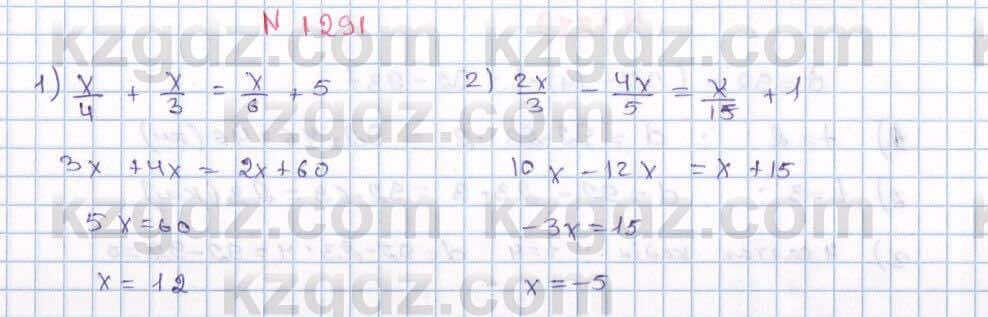 N 1291
1) x/4 + x/3 = x/6 + 5
3x + 4x = 2x + 60
5x = 60
x = 12
2) 2x/3 - 4x/5 = x/15 + 1
10x - 12x = x + 15
-3x = 15
x = -5
kzgdz.com
kzgdz.com
kzgdz.com
kzgdz.com
kzgdz.com
kzgdz.com